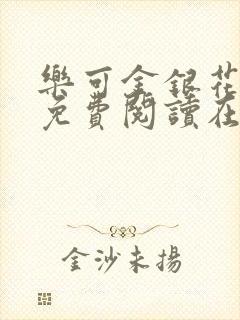 樂可金銀花
免費閱讀在
金沙未揚